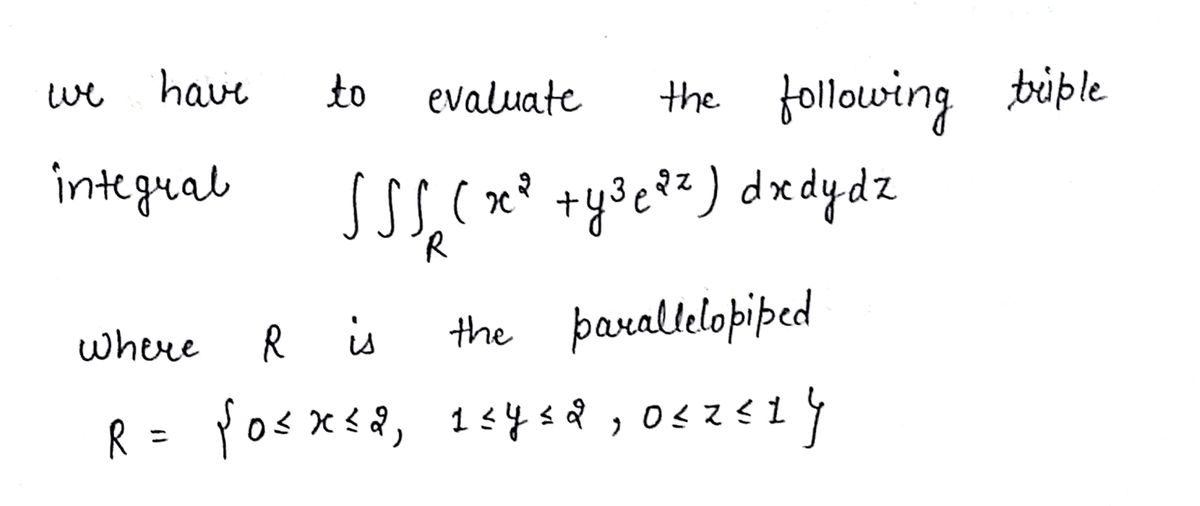 we have to evaluate the following triple
integral ∫∫∫_R (x² + y³e^{2z}) dxdydz
where R is the parallelopiped
R = {0 ≤ x ≤ 2, 1 ≤ y ≤ 2, 0 ≤ z ≤ 1}